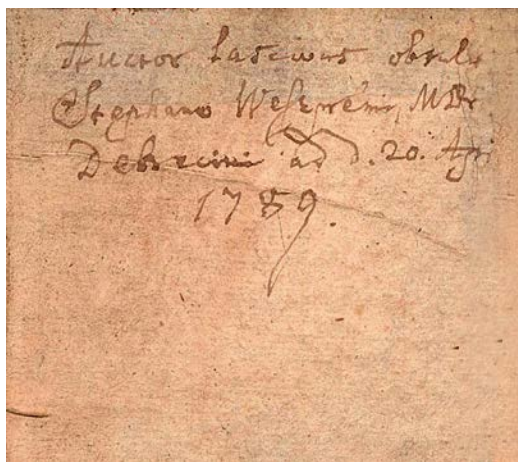 Auctor Lascivus obtulit
Stephano Weszpremi, MDr
Debrecini ad d. 20. Apr
1789.